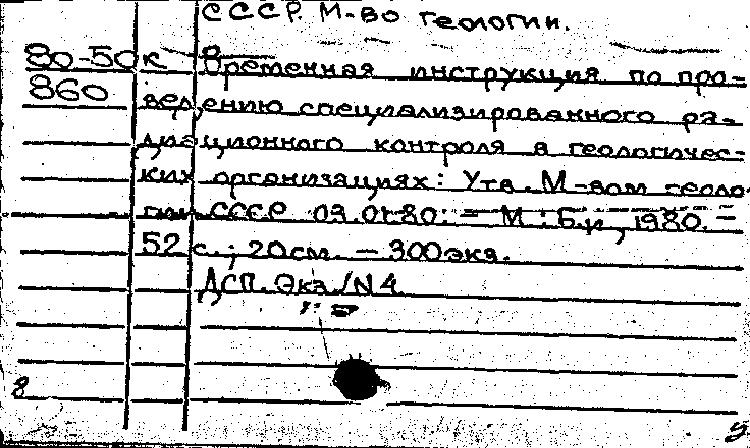 СССР. М-во геологии.
80-50к Временная инструкция по про-
860 ведению специализированного ра-
диационного контроля в геологичес-
ких организациях: Утв. М-вом геоло-
гии СССР 03.01.80. - М.: Б.и, 1980. -
52 с.; 20см. - 300экз.
ДСП. Экз./N4
8